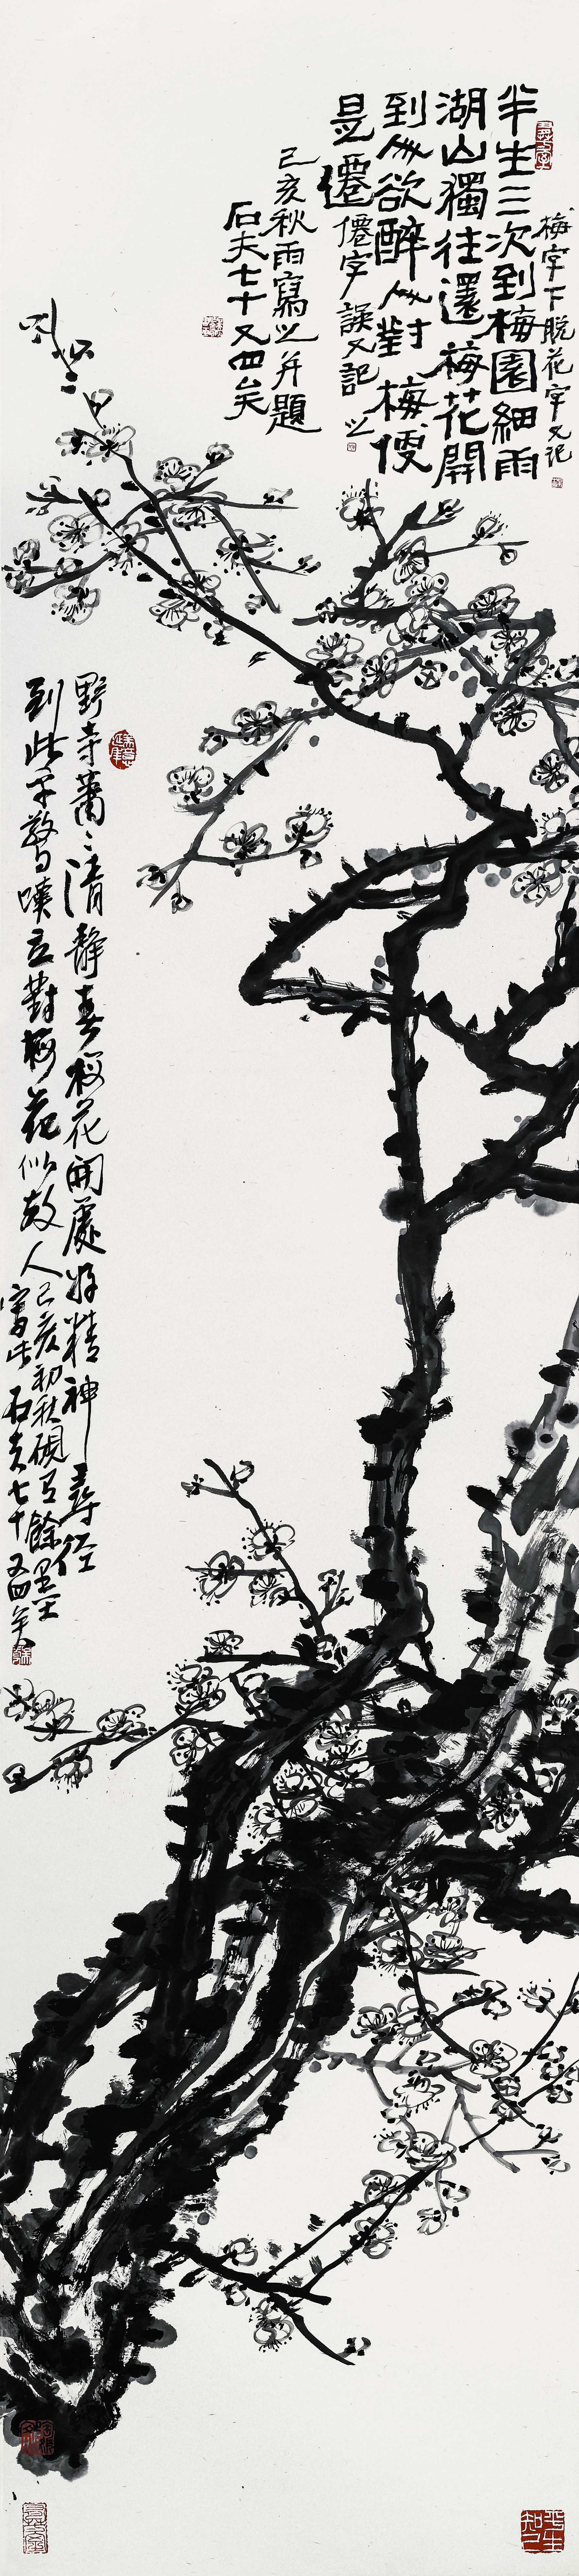 半生三次到梅園細雨
湖山獨往還梅花開
到人欲醉人對梅便
是僊僊字誤又記之
己亥秋雨寫之并題
石夫七十又四矣
梅字下脫花字又記
野寺蕭〻清静春梅花開處好精神尋徑
到此平驚嘆立對梅花似故人己亥初秋硯有餘墨
寫此石夫七十又四矣
平生
知己